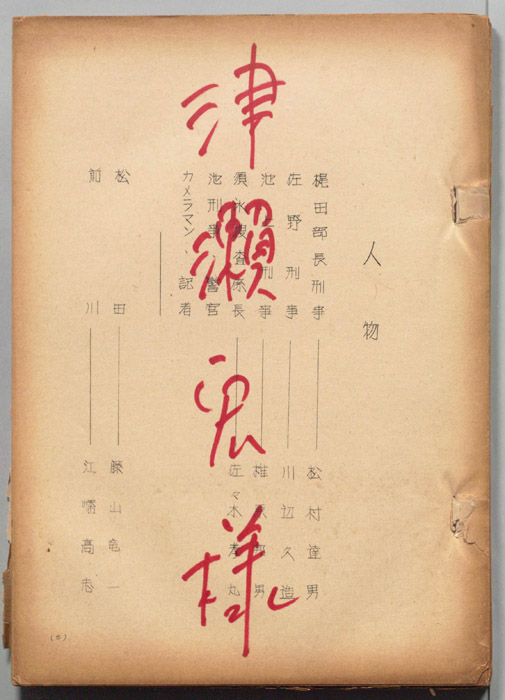 人物
梶田部長刑事――松村達男
佐野刑事――川辺久造
刑事――男
須永捜査係長――佐々木孝丸
刑事、警官
カメラマン、記者
松田――藤山竜一
前川――江幡高志
津瀬宏様